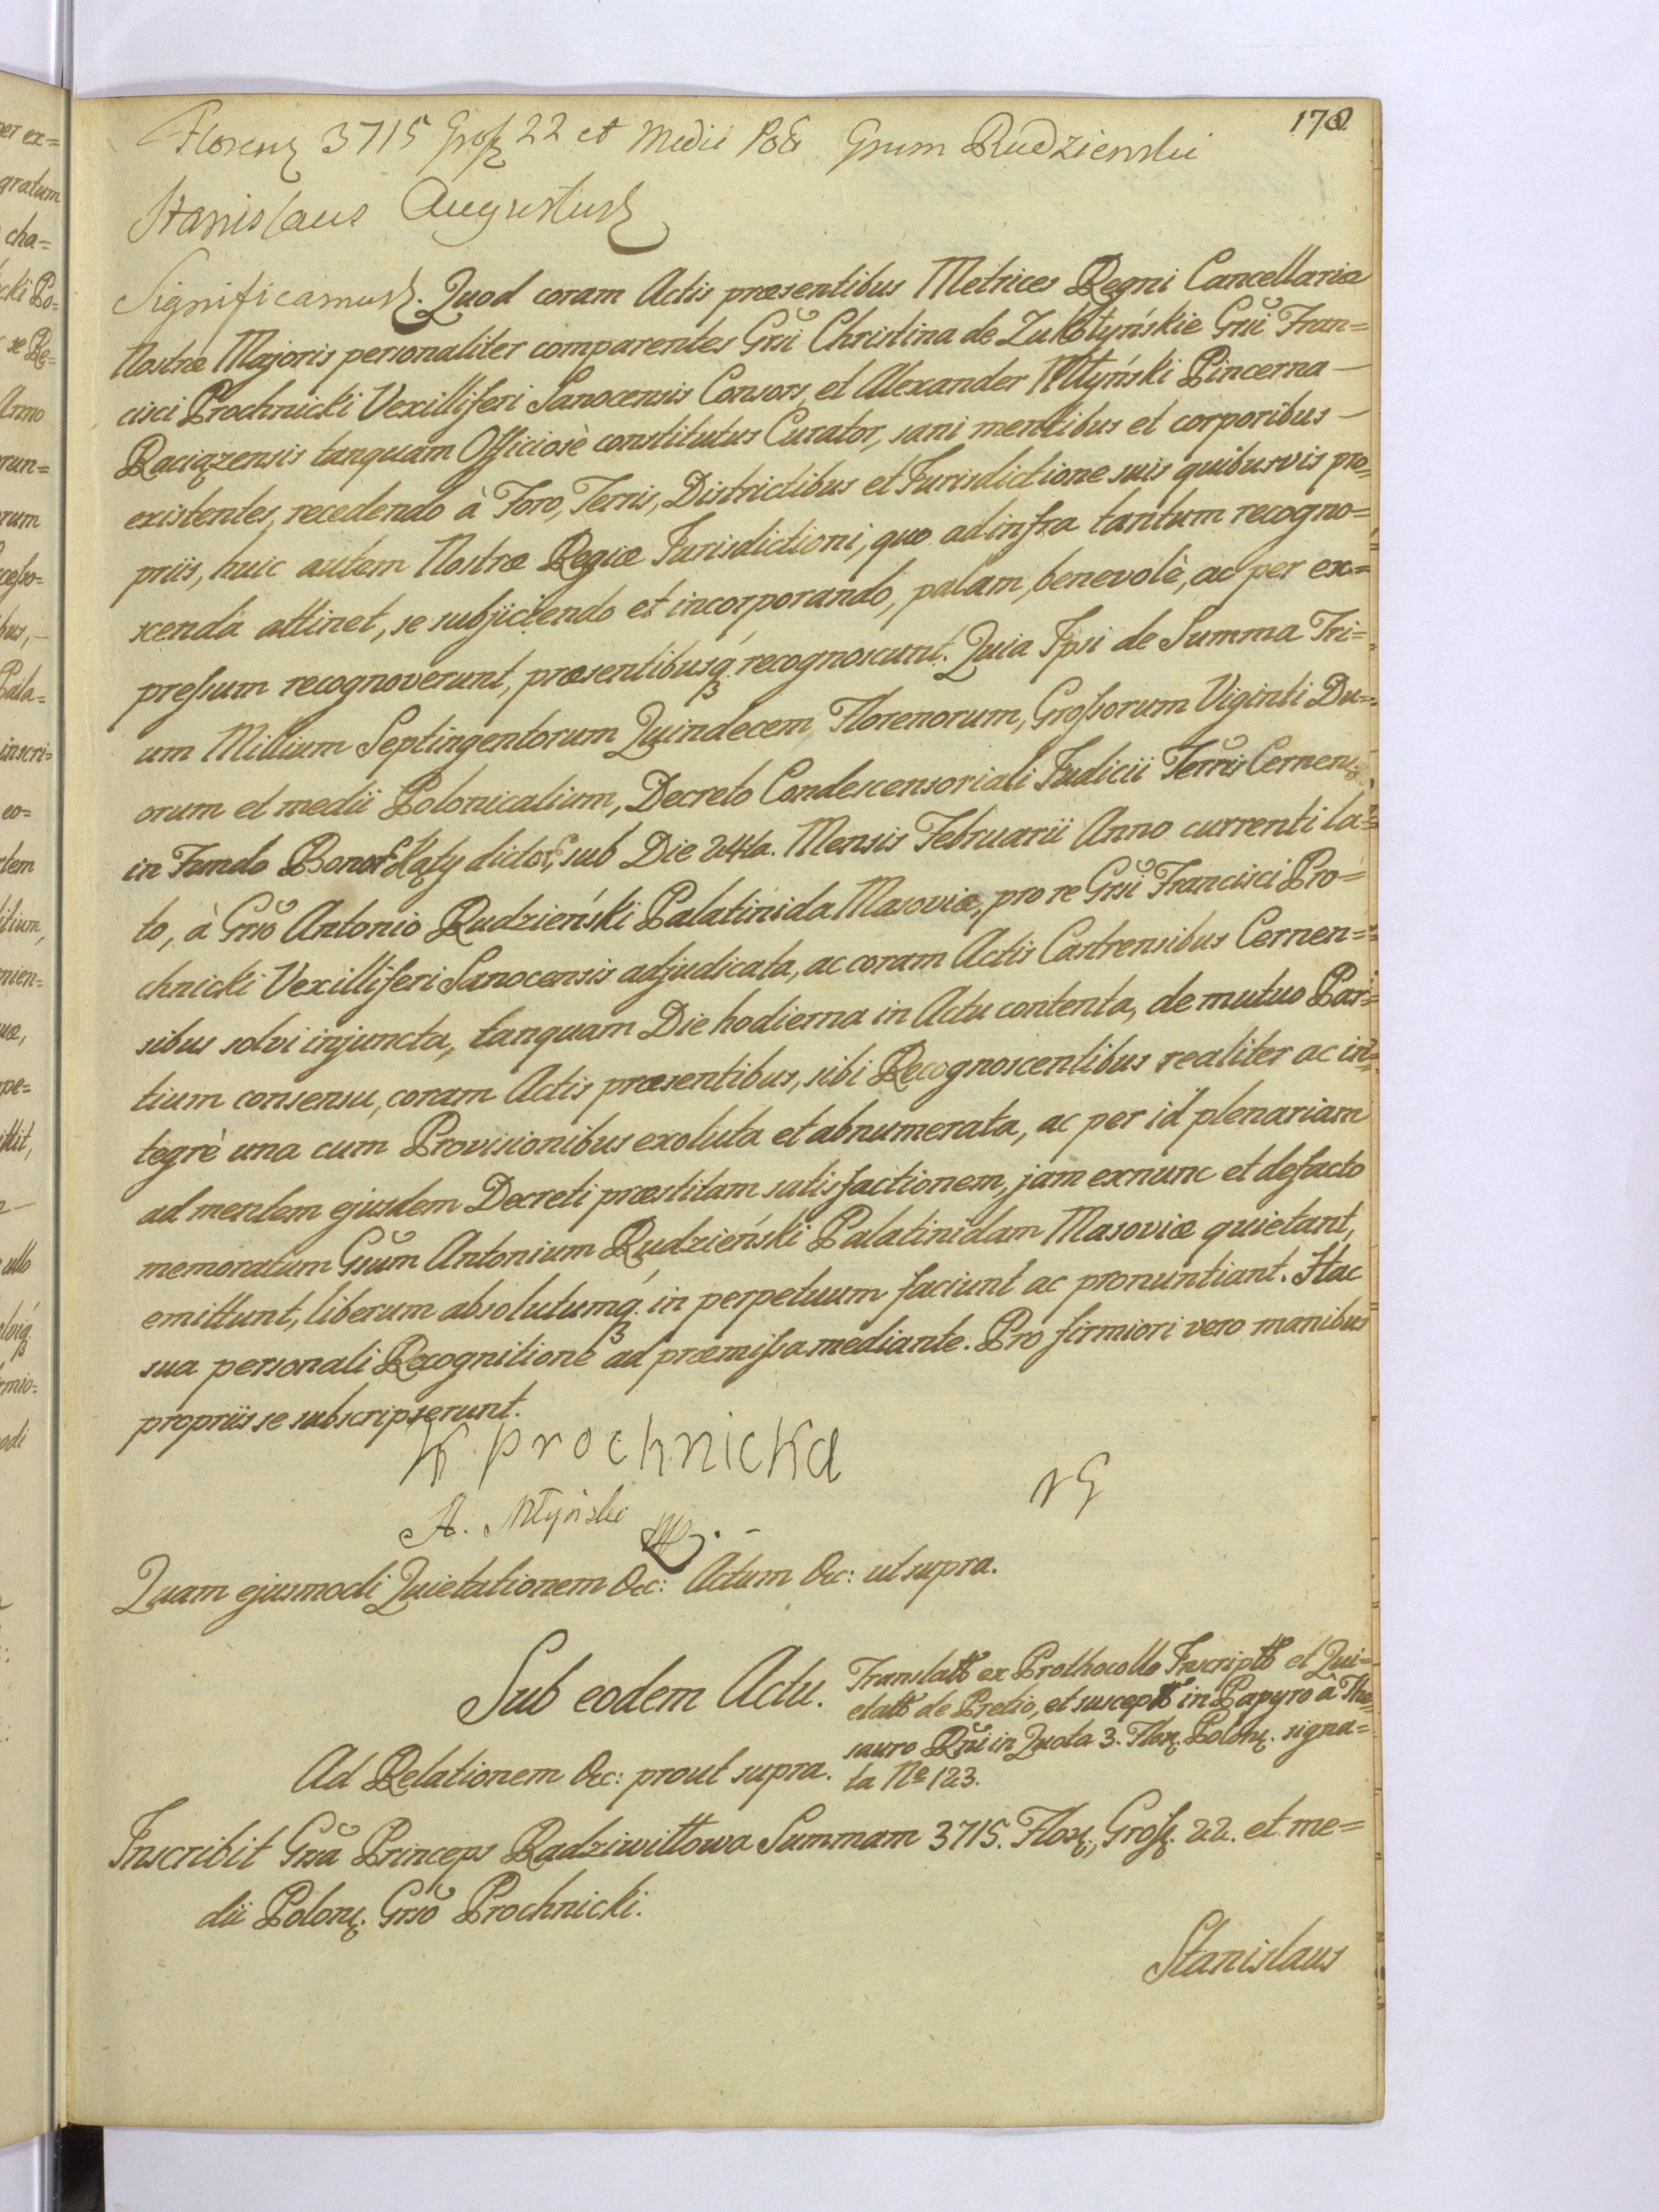 170
Florenȝ 3715 Grosȝ 22 et Medii Pol Grum Rudzienski
Stanislaus Augustus
Significamus. Quod coram Actis præsentibus Metrices Regni Cancellariæ
Nostræ Majoris personaliter comparentes Grsi Christina de Grsi Fran=
cisci Prochnicki Vexilliferi Sanocensis Consors, et Alexander Młyński Pincerna
Raciązensis tanquam Officiosè constitutus Curator, sani mentibus et corporibus
existentes, recedendo à Foro, Terris, Districtibus et Jurisdictione suis quibusvis pro=
priis, huic autem Nostræ Regiæ Jurisdictioni, quo ad infra tantum recogno=
scenda attinet, se subjiciendo et incorporando, palam, benevolè, ac per ex=
pressum recognoverunt, præsentibusq́ȝ recognoscunt. Quia Ipsi de Summa Tri=
um Millium Septingentorum Quindecem Florenorum, Grossorum Viginti Du=
orum et medii Polonicalium, Decreto Condescensoriali Judicii Terris Cernensȝ
in Fundo Bonor Kąty dictor, sub Die 24ta. Mensis Februarii Anno currenti la=
to, à Grso Antonio Rudzieński Palatinida Masoviæ, pro re Grsi Francisci Pro=
chnicki Vexilliferi Sanocensis adjudicata, ac coram Actis Castrensibus Cernen=
sibus solvi injuncta, tanquam Die hodierna in Actu contenta, de mutuo Par=
tium consensu, coram Actis præsentibus, sibi Recognoscentibus realiter ac in=
tegrè una cum Provisionibus exoluta et abnumerata, ac per id plenariam
ad mentem ejusdem Decreti præstitam satisfactionem, jam exnunc et defacto
memoratum Grsum Antonium Rudzieński Palatinidam Masoviæ quietant,
emittunt, liberum absolutumq́ȝ in perpetuum faciunt ac pronuntiant. Hac
sua personali Recognitione ad præmissa mediante. Pro firmiori vero manibus
propriis se subscripserunt.
K prochnicka
A. Młyński
Quam ejusmodi Quietationem &c: Actum &c: ut supra.
Sub eodem Actu.
Translatt ex Prothocollo Inscriptt et Qui=
etatt de Pretio, et susceptt in Papyro à The=
sauro Rni in Quota 3. Florȝ. Polonȝ. signa=
ta No 123.
Ad Relationem &c: prout supra.
Inscribit Grsa Princeps Radziwiłłowa Summam 3715. Florȝ, Grosȝ. 22. et me=
dii Polonȝ. Grso Prochnicki.
Stanislaus